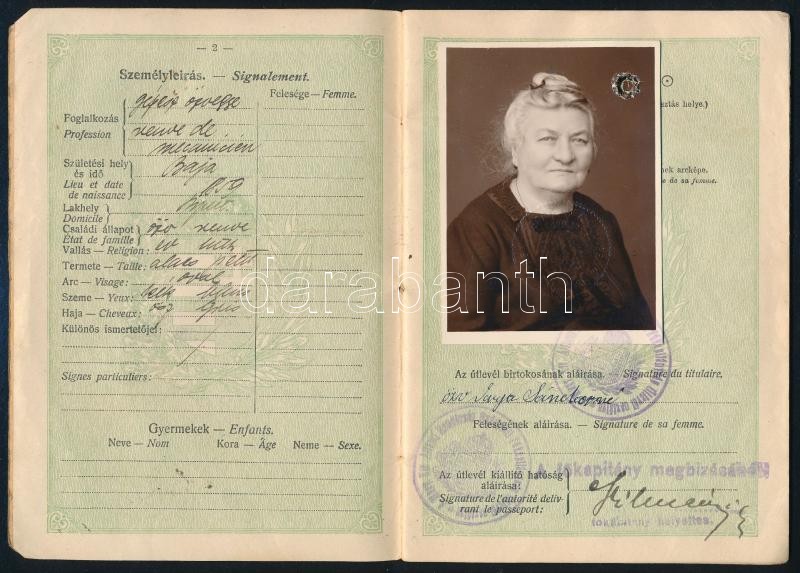 — 2 —
Személyleírás. — Signalement.
Felesége — Femme.
Foglalkozás
Profession
gépész özvegye
veuve de
mecanicien
Születési hely és idő
Lieu et date de naissance
Baja
Lakhely
Domicile
Bpest
Családi állapot
État de famille
özv veuve
Vallás — Religion:
Termete — Taille: alacs petit
Arc — Visage: oval
Szeme — Yeux: kék bleus
Haja — Cheveux: ősz gris
Különös ismertetőjei:
Signes particuliers:
Gyermekek — Enfants.
Neve — Nom Kora — Âge Neme — Sexe.
darabanth
ztás helye.)
nek arcképe.
e de sa femme.
Az útlevél birtokosának aláírása. — Signature du titulaire.
özv Sándorné
Feleségének aláírása. — Signature de sa femme.
A főkapitány megbizásából
Az útlevél kiállító hatóság aláírása:
Signature de l'autorité délivrant le passeport:
főkapitány helyettes.